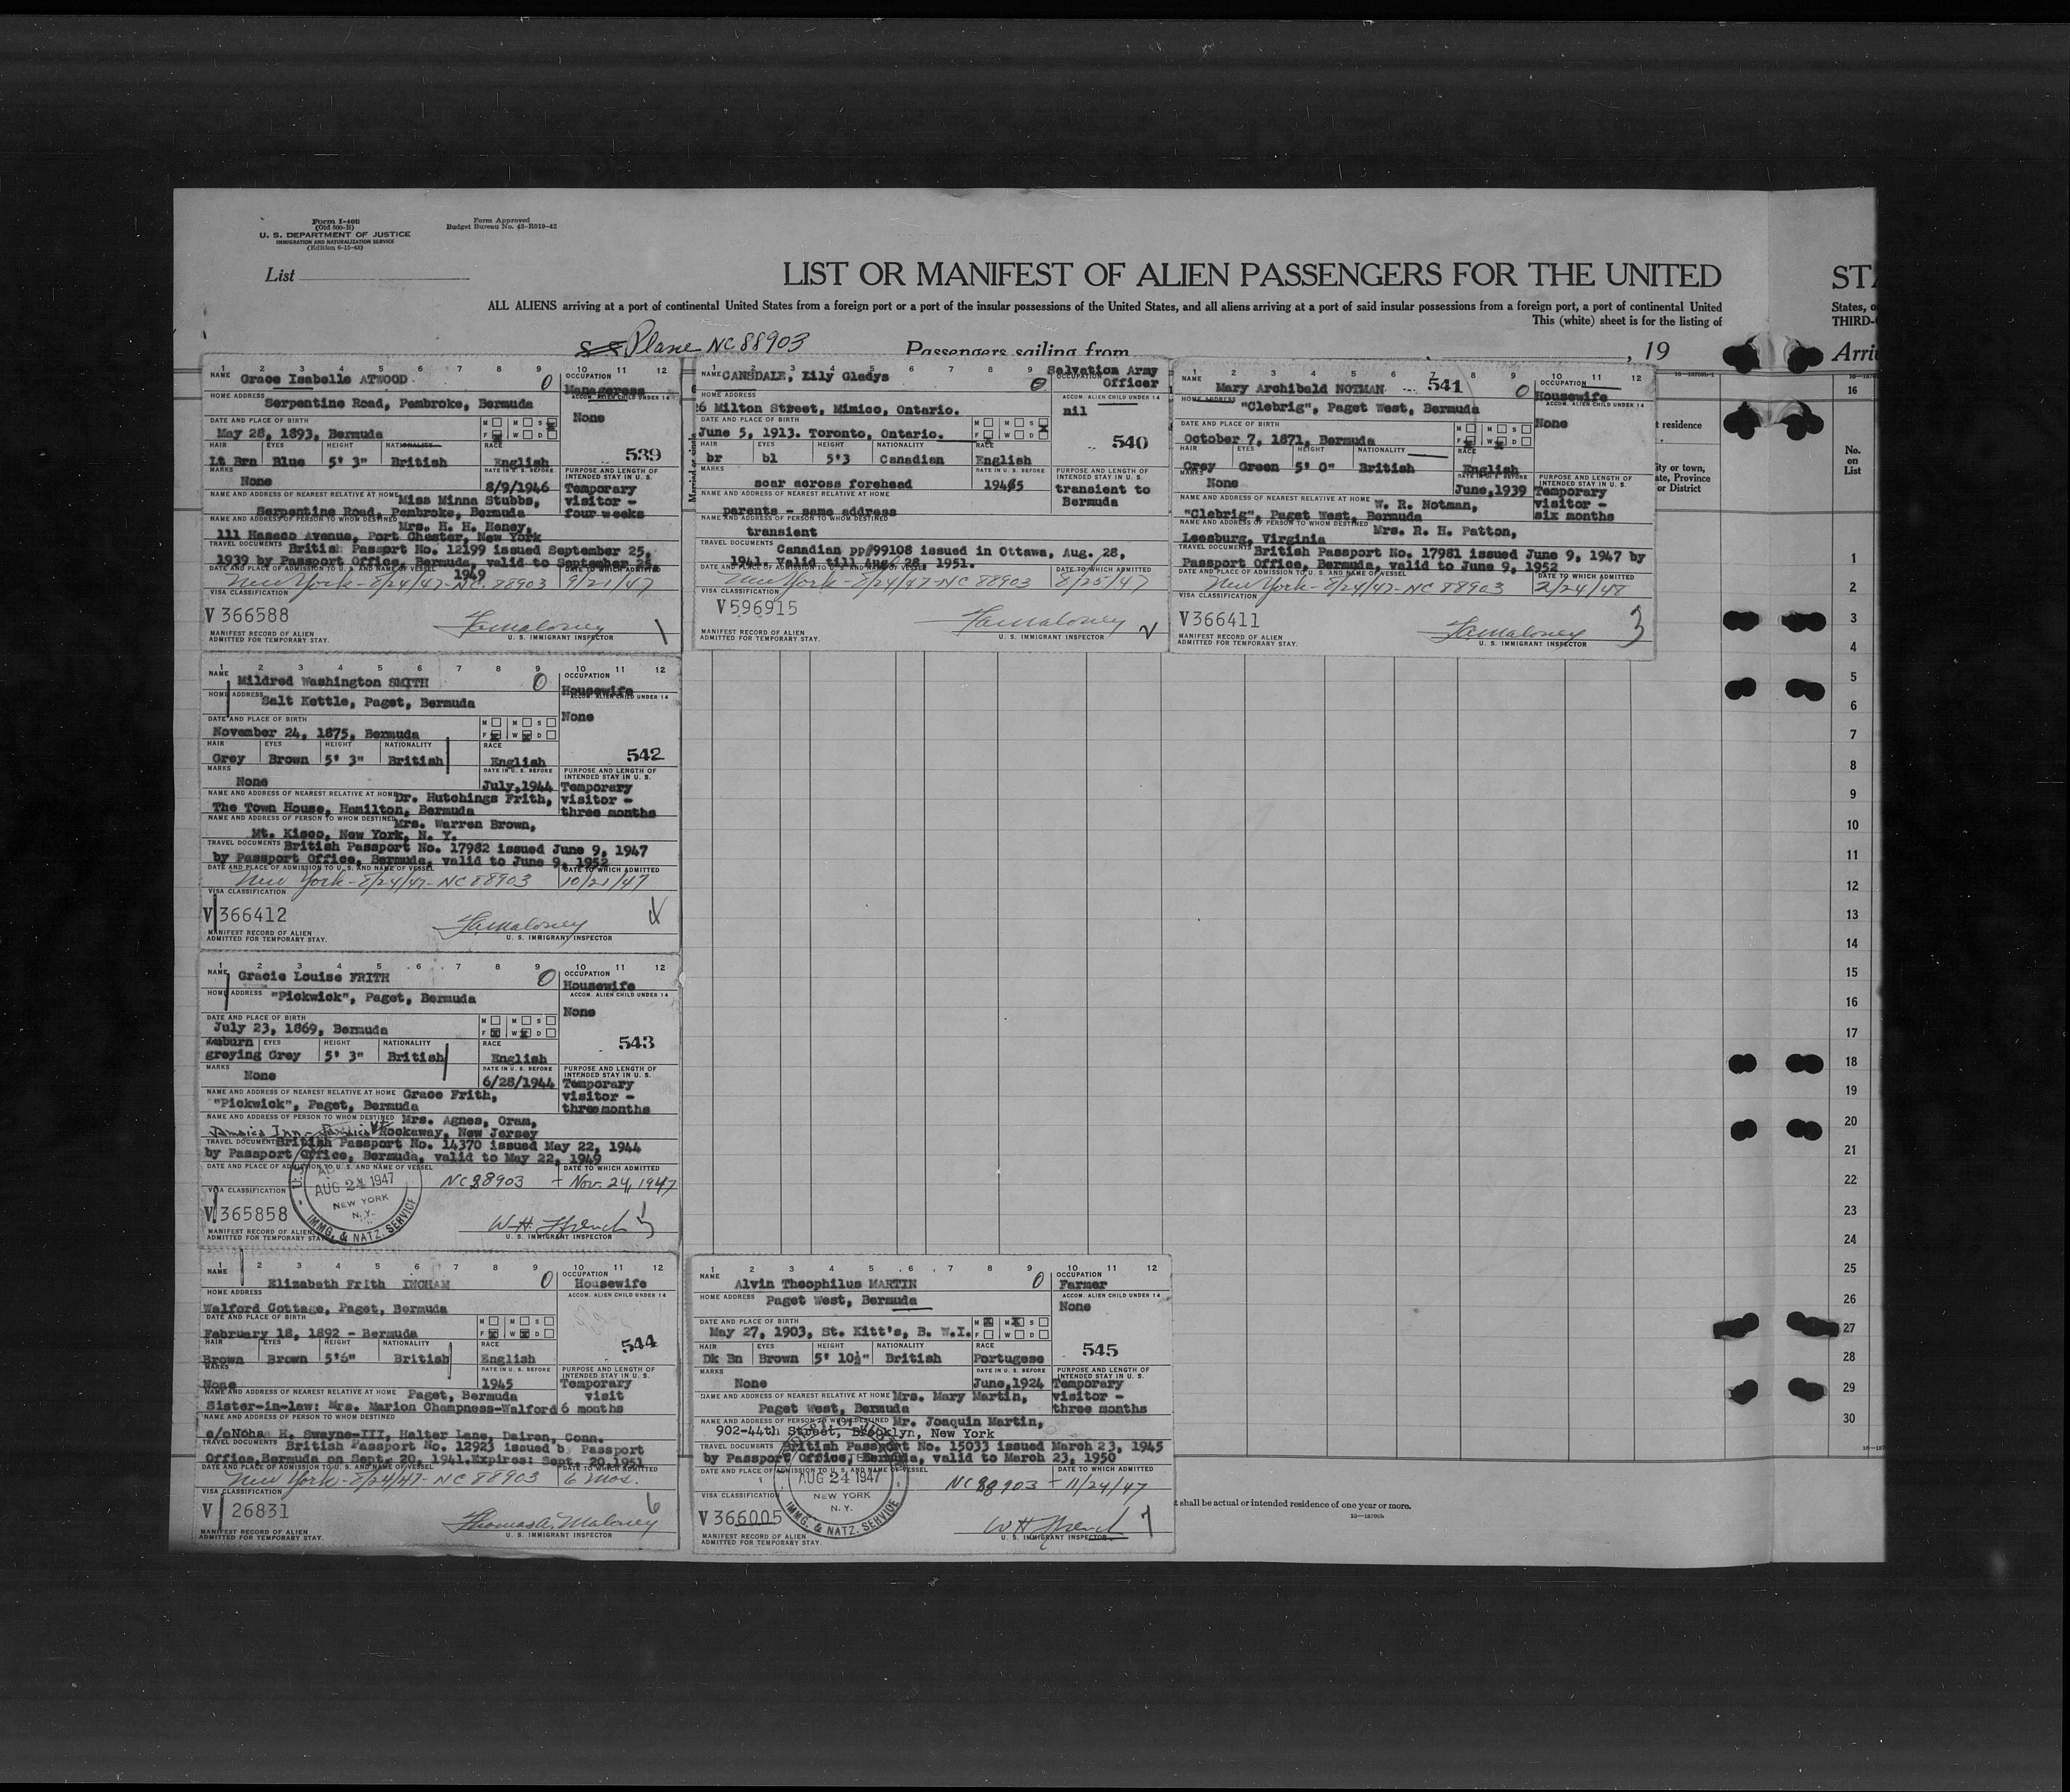 Form I-408
(Old 500-B)
U. S. DEPARTMENT OF JUSTICE
IMMIGRATION AND NATURALIZATION SERVICE
(Edition 6-15-43)
Form Approved
Budget Bureau No. 43-R019-42
List
LIST OR MANIFEST OF ALIEN PASSENGERS FOR THE UNITED
ALL ALIENS arriving at a port of continental United States from a foreign port or a port of the insular possessions of the United States, and all aliens arriving at a port of said insular possessions from a foreign port, a port of continental United
This (white) sheet is for the listing of
States, o
THIRD-
Plane NC 88903
Passengers sailing from , 19
Arri
1 2 3 4 5 6 7 8 9 10 11 12
NAME Grace Isabelle ATWOOD 0
OCCUPATION Manageress
HOME ADDRESS Serpentine Road, Pembroke, Bermuda
ACCOM. ALIEN CHILD UNDER 14 None
DATE AND PLACE OF BIRTH
May 28, 1893, Bermuda
M M S
F W D
HAIR EYES HEIGHT NATIONALITY RACE
Lt Brn Blue 5' 3" British English
539
MARKS None
DATE IN U. S. BEFORE 8/9/1946
PURPOSE AND LENGTH OF INTENDED STAY IN U. S.
Temporary visitor - four weeks
NAME AND ADDRESS OF NEAREST RELATIVE AT HOME Miss Minna Stubbs,
Serpentine Road, Pembroke, Bermuda
NAME AND ADDRESS OF PERSON TO WHOM DESTINED Mrs. H. H. Heney,
111 Haseco Avenue, Port Chester, New York
TRAVEL DOCUMENTS British Passport No. 12199 issued September 25,
1939 by Passport Office, Bermuda, valid to September 25,
1949
DATE AND PLACE OF ADMISSION TO U. S. AND NAME OF VESSEL
DATE TO WHICH ADMITTED
New York - 8/24/47 - NC. 88903 9/21/47
VISA CLASSIFICATION
V 366588
MANIFEST RECORD OF ALIEN
ADMITTED FOR TEMPORARY STAY.
U. S. IMMIGRANT INSPECTOR
1
1 2 3 4 5 6 7 8 9
NAME CANSDALE, Lily Gladys 0
OCCUPATION Salvation Army Officer
HOME ADDRESS
26 Milton Street, Mimico, Ontario.
ACCOM. ALIEN CHILD UNDER 14
nil
DATE AND PLACE OF BIRTH
June 5, 1913. Toronto, Ontario.
M M S
F W D
540
HAIR EYES HEIGHT NATIONALITY RACE
br bl 5'3 Canadian English
MARKS
scar across forehead
DATE IN U. S. BEFORE
1945
PURPOSE AND LENGTH OF INTENDED STAY IN U. S.
transient to Bermuda
NAME AND ADDRESS OF NEAREST RELATIVE AT HOME
parents - same address
NAME AND ADDRESS OF PERSON TO WHOM DESTINED
transient
TRAVEL DOCUMENTS
Canadian pp#99108 issued in Ottawa, Aug. 28,
1941. Valid till Aug. 28, 1951.
DATE AND PLACE OF ADMISSION TO U. S. AND NAME OF VESSEL
DATE TO WHICH ADMITTED
New York - 8/24/47 - NC 88903 8/25/47
VISA CLASSIFICATION
V 596915
MANIFEST RECORD OF ALIEN
ADMITTED FOR TEMPORARY STAY.
U. S. IMMIGRANT INSPECTOR
1 2 3 4 5 6 7 8 9 10 11 12
NAME Mary Archibald NOTMAN 541 0
OCCUPATION Housewife
HOME ADDRESS "Clebrig", Paget West, Bermuda
ACCOM. ALIEN CHILD UNDER 14
None
DATE AND PLACE OF BIRTH
October 7, 1871, Bermuda
M M S
F W D
HAIR EYES HEIGHT NATIONALITY RACE
Grey Green 5' 0" British English
MARKS None
DATE IN U. S. BEFORE
June, 1939
PURPOSE AND LENGTH OF INTENDED STAY IN U. S.
Temporary visitor - six months
NAME AND ADDRESS OF NEAREST RELATIVE AT HOME W. R. Notman,
"Clebrig", Paget West, Bermuda
NAME AND ADDRESS OF PERSON TO WHOM DESTINED Mrs. R. H. Patton,
Leesburg, Virginia
TRAVEL DOCUMENTS British Passport No. 17981 issued June 9, 1947 by
Passport Office, Bermuda, valid to June 9, 1952
DATE AND PLACE OF ADMISSION TO U. S. AND NAME OF VESSEL
DATE TO WHICH ADMITTED
New York - 8/24/47 - NC 88903 2/24/48
VISA CLASSIFICATION
V 366411
MANIFEST RECORD OF ALIEN
ADMITTED FOR TEMPORARY STAY.
U. S. IMMIGRANT INSPECTOR
3
1 2 3 4 5 6 7 8 9 10 11 12
NAME Mildred Washington SMITH 0
OCCUPATION Housewife
HOME ADDRESS Salt Kettle, Paget, Bermuda
ACCOM. ALIEN CHILD UNDER 14
None
DATE AND PLACE OF BIRTH
November 24, 1875, Bermuda
M M S
F W D
HAIR EYES HEIGHT NATIONALITY RACE
Grey Brown 5' 3" British English
542
MARKS None
DATE IN U. S. BEFORE
July, 1944
PURPOSE AND LENGTH OF INTENDED STAY IN U. S.
Temporary visitor - three months
NAME AND ADDRESS OF NEAREST RELATIVE AT HOME Dr. Hutchings Frith,
The Town House, Hamilton, Bermuda
NAME AND ADDRESS OF PERSON TO WHOM DESTINED Mrs. Warren Brown,
Mt. Kisco, New York, N. Y.
TRAVEL DOCUMENTS British Passport No. 17982 issued June 9, 1947
by Passport Office, Bermuda, valid to June 9, 1952
DATE AND PLACE OF ADMISSION TO U. S. AND NAME OF VESSEL
DATE TO WHICH ADMITTED
New York - 8/24/47 - NC 88903 10/21/47
VISA CLASSIFICATION
V 366412
MANIFEST RECORD OF ALIEN
ADMITTED FOR TEMPORARY STAY.
U. S. IMMIGRANT INSPECTOR
1 2 3 4 5 6 7 8 9 10 11 12
NAME Gracie Louise FRITH 0
OCCUPATION Housewife
HOME ADDRESS "Pickwick", Paget, Bermuda
ACCOM. ALIEN CHILD UNDER 14
None
DATE AND PLACE OF BIRTH
July 23, 1869, Bermuda
M M S
F W D
Auburn EYES HEIGHT NATIONALITY RACE
greying Grey 5' 3" British English
543
MARKS None
DATE IN U. S. BEFORE
6/28/1944
PURPOSE AND LENGTH OF INTENDED STAY IN U. S.
Temporary visitor - three months
NAME AND ADDRESS OF NEAREST RELATIVE AT HOME Grace Frith,
"Pickwick", Paget, Bermuda
NAME AND ADDRESS OF PERSON TO WHOM DESTINED Mrs. Agnes, Oram,
Jamaica Inn - Jamaica Vt Rockaway, New Jersey
TRAVEL DOCUMENTS British Passport No. 14370 issued May 22, 1944
by Passport Office, Bermuda, valid to May 22, 1949
DATE AND PLACE OF ADMISSION TO U. S. AND NAME OF VESSEL
DATE TO WHICH ADMITTED
AUG 24 1947
NEW YORK
N. Y.
IMMG. & NATZ. SERVICE
NC 88903 + Nov. 24, 1947
VISA CLASSIFICATION
V. 365858
W. H. French
MANIFEST RECORD OF ALIEN
ADMITTED FOR TEMPORARY STAY
U. S. IMMIGRANT INSPECTOR
5
1 2 3 4 5 6 7 8 9 10 11 12
NAME Elizabeth Frith INGHAM 0
OCCUPATION Housewife
HOME ADDRESS
Walford Cottage, Paget, Bermuda
ACCOM. ALIEN CHILD UNDER 14
DATE AND PLACE OF BIRTH
February 18, 1892 - Bermuda
M M S
F W D
544
HAIR EYES HEIGHT NATIONALITY RACE
Brown Brown 5'6" British English
MARKS
None
DATE IN U. S. BEFORE
1945
PURPOSE AND LENGTH OF INTENDED STAY IN U. S.
Temporary visit 6 months
NAME AND ADDRESS OF NEAREST RELATIVE AT HOME Paget, Bermuda
Sister-in-law: Mrs. Marion Champness-Walford
NAME AND ADDRESS OF PERSON TO WHOM DESTINED
c/oNoha H. Swayne-III, Halter Lane, Dairen, Conn.
TRAVEL DOCUMENTS British Passport No. 12923 issued b Passport
Office, Bermuda on Sept. 20, 1941. Expires: Sept. 20, 1951
DATE AND PLACE OF ADMISSION TO U. S. AND NAME OF VESSEL
DATE TO WHICH ADMITTED
New York - 8/24/47 - NC 88903 6 mos.
VISA CLASSIFICATION
V 26831
Thomas A. Maloney
6
MANIFEST RECORD OF ALIEN
ADMITTED FOR TEMPORARY STAY.
U. S. IMMIGRANT INSPECTOR
1 2 3 4 5 6 7 8 9 10 11 12
NAME Alvin Theophilus MARTIN 0
OCCUPATION Farmer
HOME ADDRESS Paget West, Bermuda
ACCOM. ALIEN CHILD UNDER 14
None
DATE AND PLACE OF BIRTH
May 27, 1903, St. Kitt's, B. W.I.
M M S
F W D
HAIR EYES HEIGHT NATIONALITY RACE
Dk Bn Brown 5' 10½" British Portugese
545
MARKS None
DATE IN U. S. BEFORE
June, 1924
PURPOSE AND LENGTH OF INTENDED STAY IN U. S.
Temporary visitor - three months
NAME AND ADDRESS OF NEAREST RELATIVE AT HOME Mrs. Mary Martin,
Paget West, Bermuda
NAME AND ADDRESS OF PERSON TO WHOM DESTINED Mr. Joaquin Martin,
902-44th Street, Brooklyn, New York
TRAVEL DOCUMENTS British Passport No. 15033 issued March 23, 1945
by Passport Office, Bermuda, valid to March 23, 1950
DATE AND PLACE OF ADMISSION TO U. S. AND NAME OF VESSEL
DATE TO WHICH ADMITTED
AUG 24 1947
NEW YORK
N. Y.
IMMG. & NATZ. SERVICE
NC 88903 + 11/24/47
VISA CLASSIFICATION
V 366005
W H French
7
MANIFEST RECORD OF ALIEN
ADMITTED FOR TEMPORARY STAY.
U. S. IMMIGRANT INSPECTOR
t residence
ity or town,
ate, Province
or District
16
No.
on
List
1
2
3
4
5
6
7
8
9
10
11
12
13
14
15
16
17
18
19
20
21
22
23
24
25
26
27
28
29
30
t shall be actual or intended residence of one year or more.